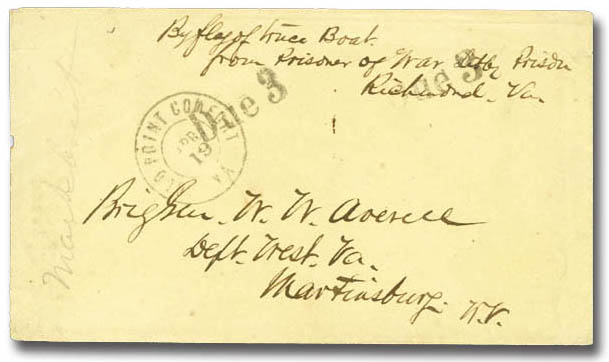 By flag of truce Boat.
from Prisoner of War Libby Prison
Richmond. Va.
Due 3
Due 3
OLD POINT COMFORT VA
APR
19
Brig Gen. W. W. Averell
Dept. West. Va.
Martinsburg. W.V.